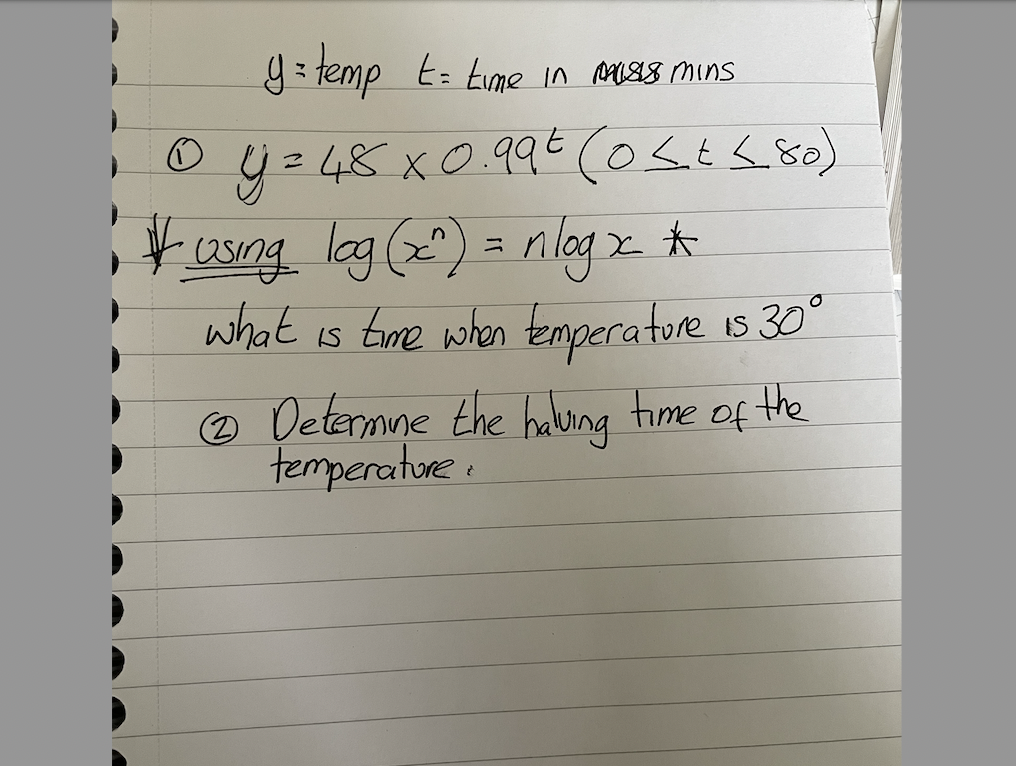 y = temp t = time in mins
① y = 48 × 0.99ᵗ (0 ≤ t ≤ 80)
* using log(xⁿ) = n log x *
what is time when temperature is 30°
② Determine the halving time of the
temperature.